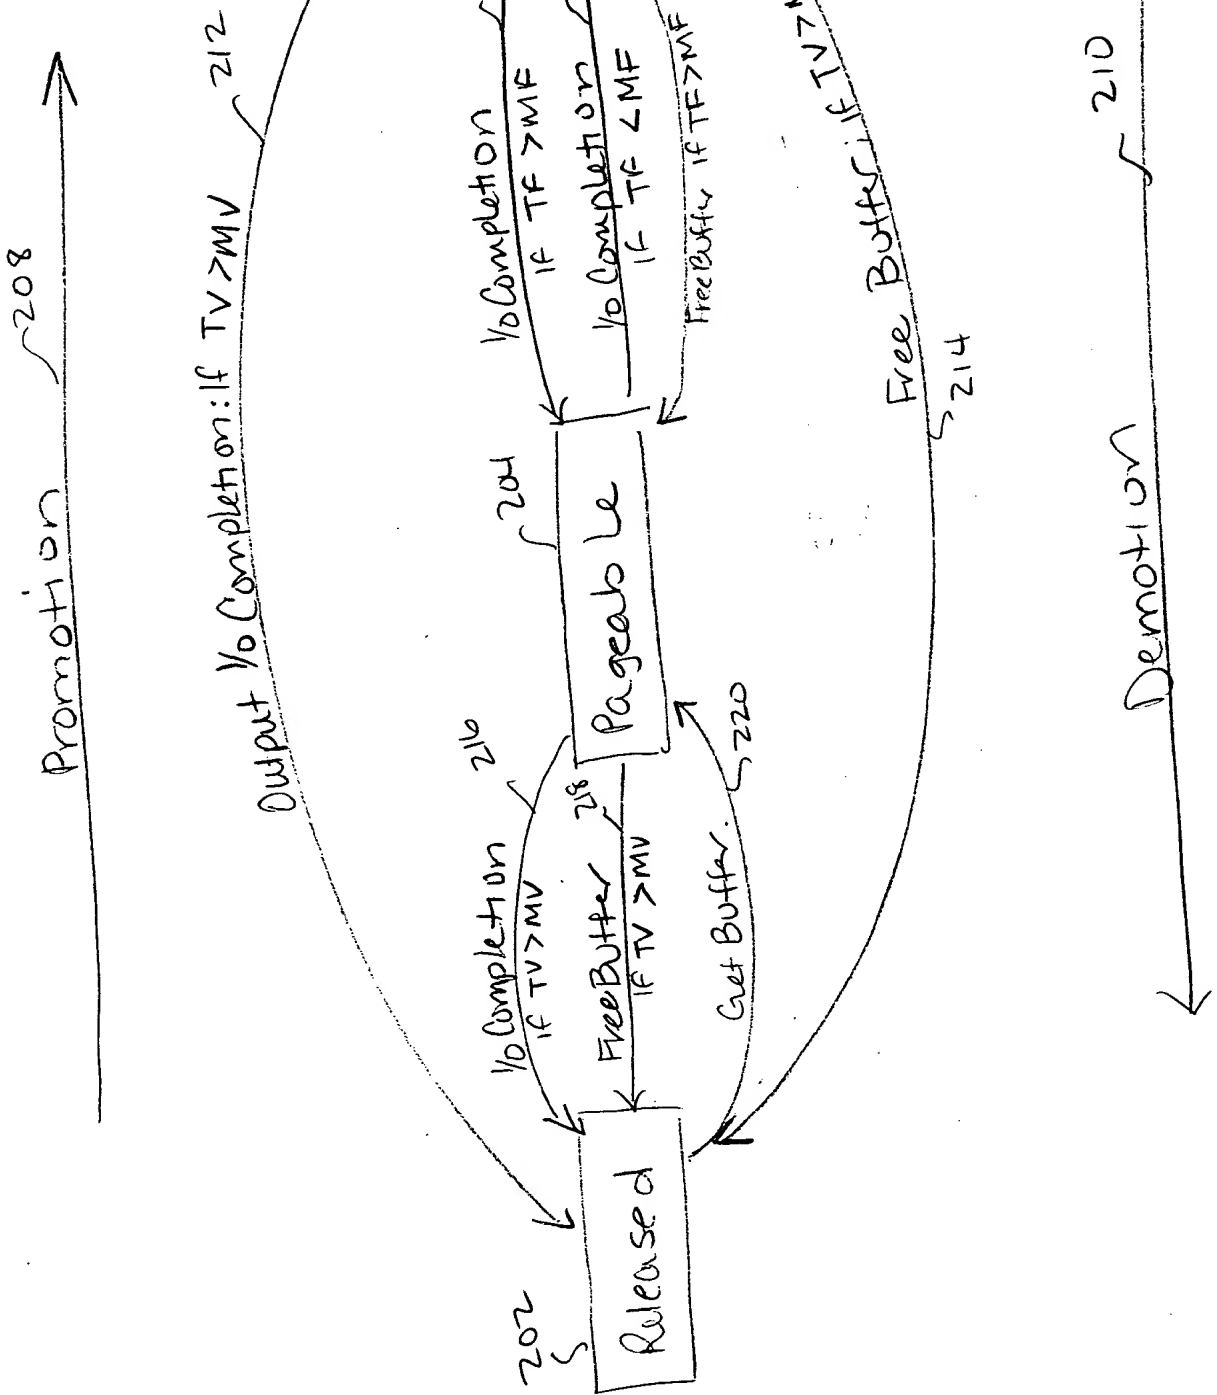 Promotion
208
Output I/O Completion: If TV >MV
212
I/O Completion
If TF >MF
I/O Completion
If TF <MF
Free Buffer If TF>MF
Free Buffer: If TV>
214
204
Pageable
216
I/O Completion
If TV>MV
218
Free Buffer
If TV >MV
Get Buffer.
220
202
Released
Demotion
210